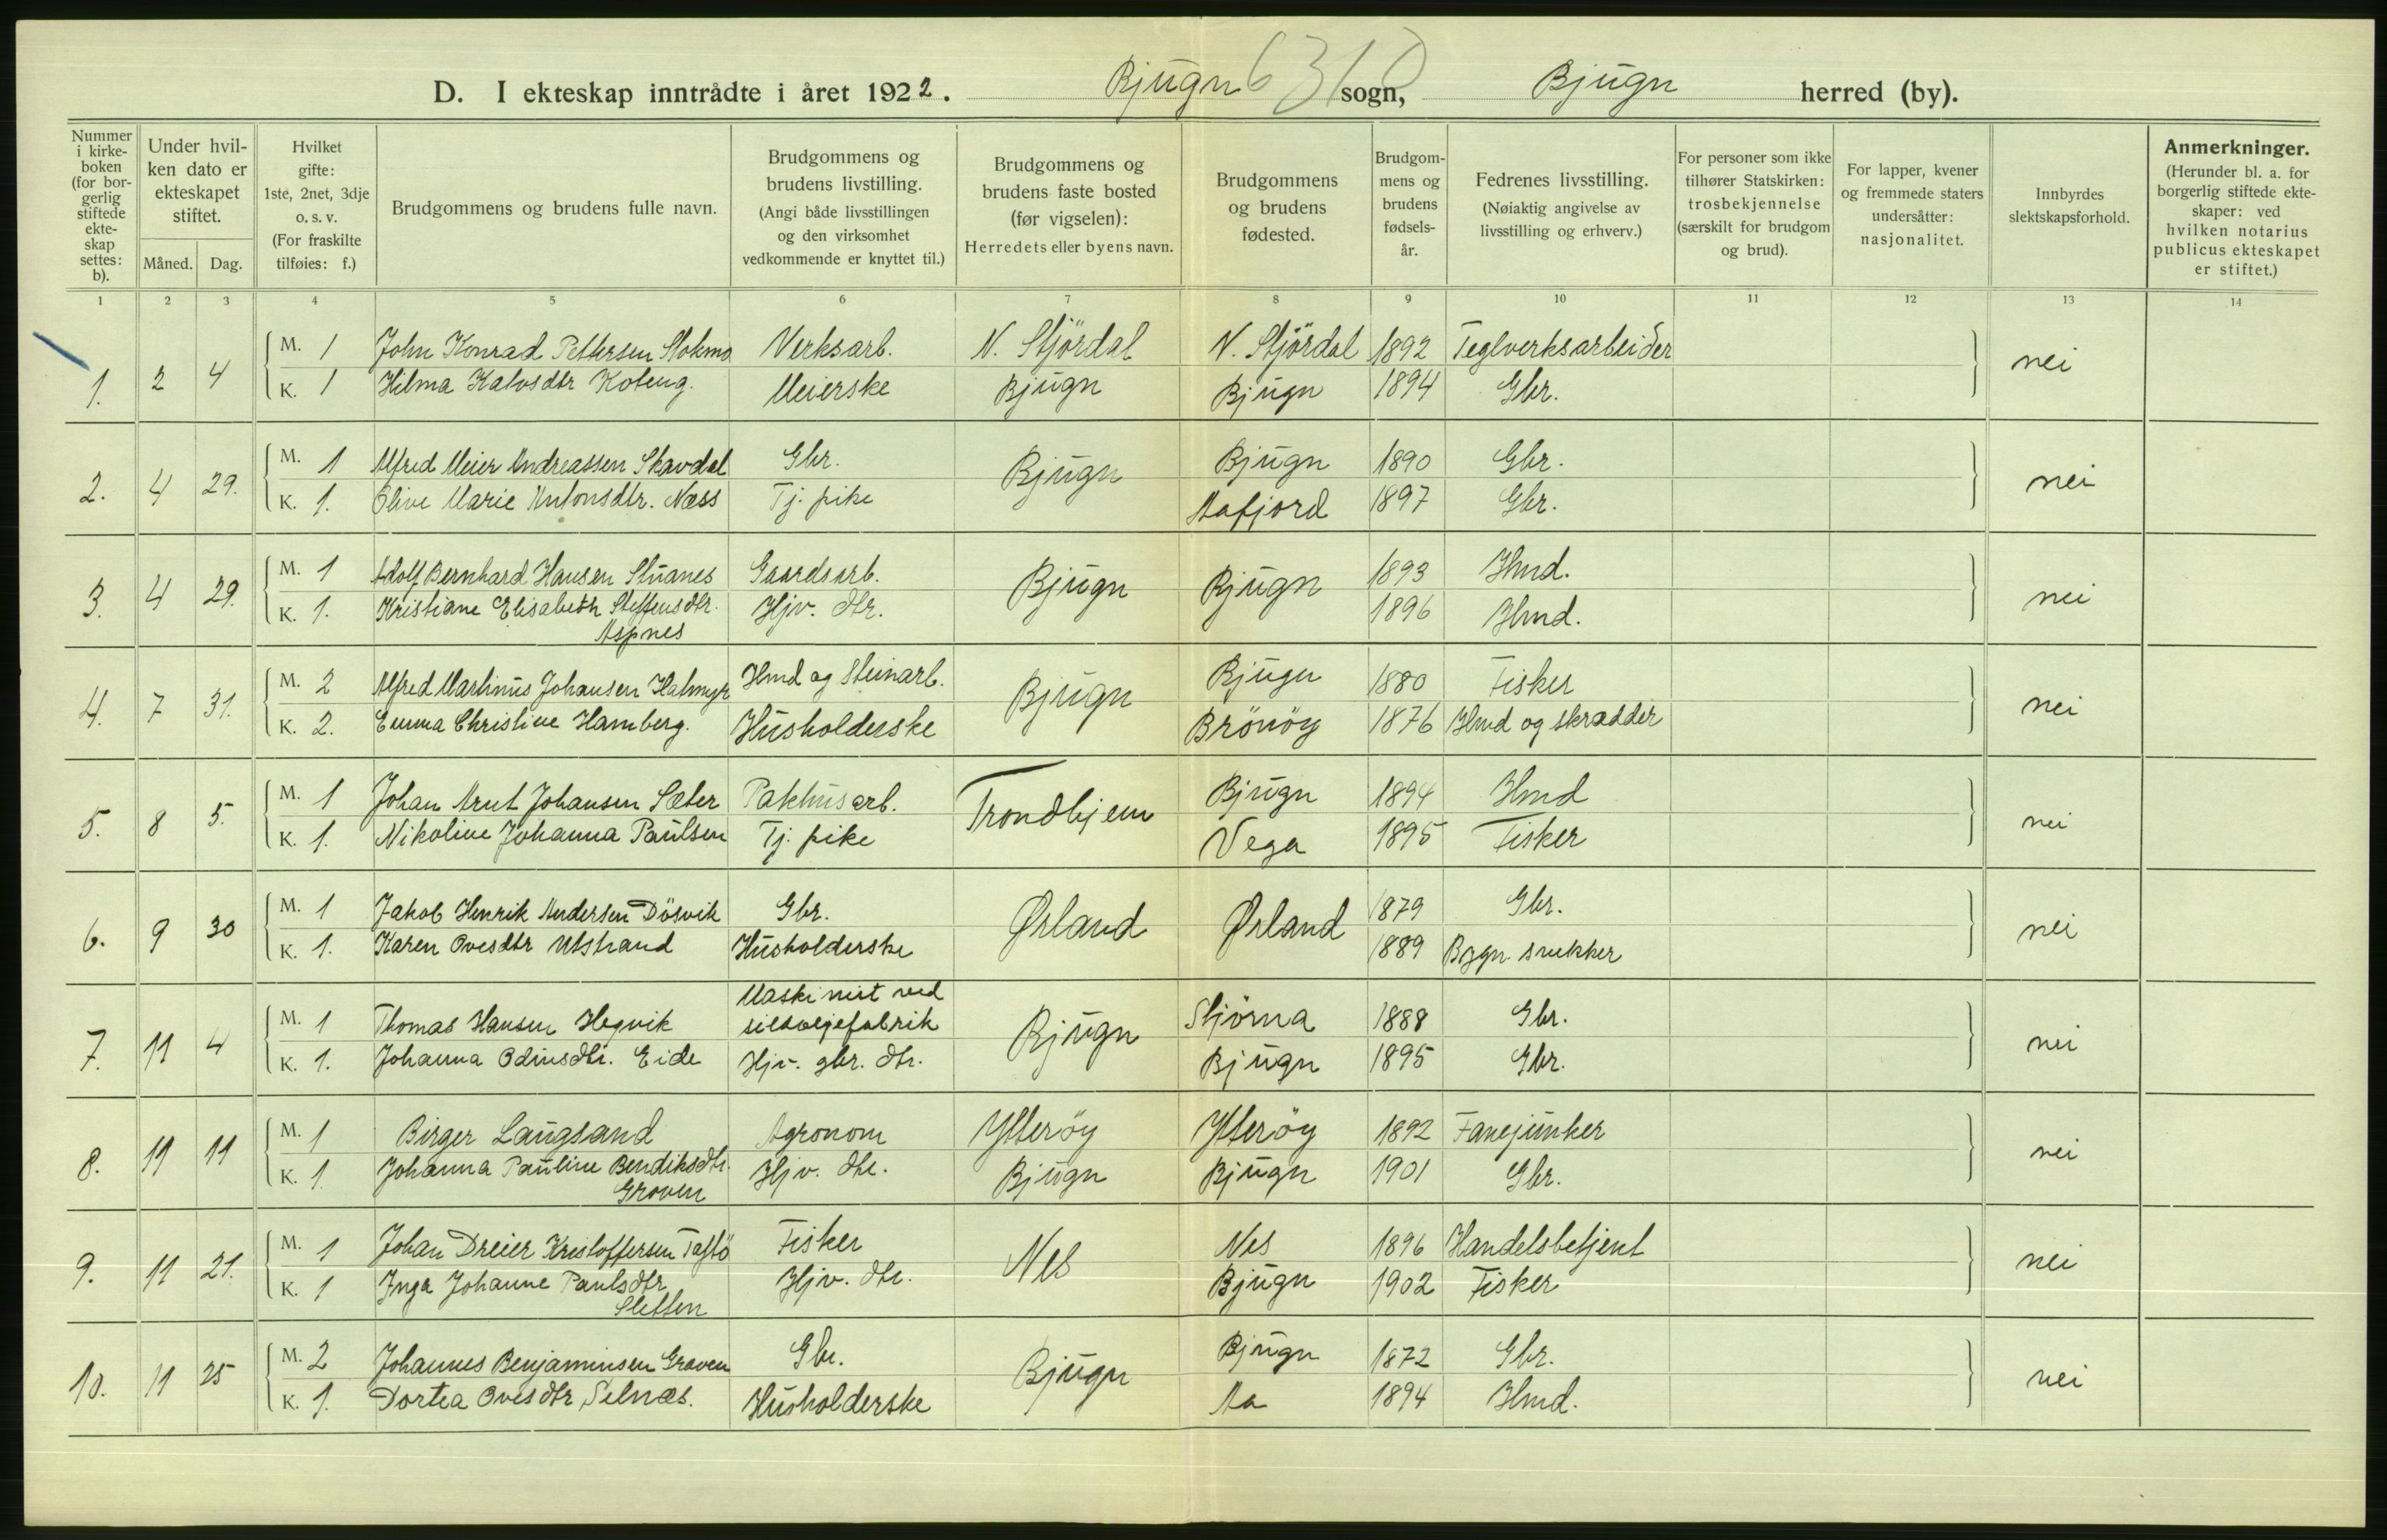 D. I ekteskap inntrådte i året 1922. Bjugn 6310 sogn, Bjugn herred (by).
Nummer i kirkeboken (for borgerlig stiftede ekteskap settes: b).
Under hvilken dato er ekteskapet stiftet.
Måned. Dag.
Hvilket gifte: 1ste, 2net, 3dje o. s. v. (For fraskilte tilføies: f.)
Brudgommens og brudens fulle navn.
Brudgommens og brudens livstilling. (Angi både livsstillingen og den virksomhet vedkommende er knyttet til.)
Brudgommens og brudens faste bosted (før vigselen): Herredets eller byens navn.
Brudgommens og brudens fødested.
Brudgommens og brudens fødselsår.
Fedrenes livsstilling. (Nøiaktig angivelse av livsstilling og erhverv.)
For personer som ikke tilhører Statskirken: trosbekjennelse (særskilt for brudgom og brud).
For lapper, kvener og fremmede staters undersåtter: nasjonalitet.
Innbyrdes slektskapsforhold.
Anmerkninger. (Herunder bl. a. for borgerlig stiftede ekteskaper: ved hvilken notarius publicus ekteskapet er stiftet.)
1 2 3 4 5 6 7 8 9 10 11 12 13 14
1. 2 4 M. 1 John Konrad Pettersen Stokmo Verksarb. N. Stjördal N. Stjördal 1892 Teglverksarbeider nei
K. 1 Hilma Kalvsdtr Koteng. Meierske Bjugn Bjugn 1894 Gbr.
2. 4 29. M. 1 Alfred Meier Andreassen Skavdal Gbr. Bjugn Bjugn 1890 Gbr. nei
K. 1. Olive Marie Antonsdtr. Næss Tj. pike Aafjord 1897 Gbr.
3. 4 29. M. 1 Adolf Bernhard Hansen Stuanes Gaardsarb. Bjugn Bjugn 1893 Hmd. nei
K. 1. Kristiane Elisabeth Steffensdtr. Aspnes Hjv. dtr. 1896 Hmd.
4. 7 31. M. 2 Alfred Martinus Johansen Halmyr Hmd og Steinarb. Bjugn Bjugn 1880 Fisker nei
K. 2. Emma Christine Hamberg. Husholderske Brönöy 1876 Hmd og skrædder
5. 8 5. M. 1 Johan Arnt Johansen Sæter Pakhusarb. Trondhjem Bjugn 1894 Hmd nei
K. 1. Nikoline Johanna Paulsen Tj. pike Vega 1895 Fisker
6. 9 30 M. 1 Jakob Henrik Andersen Dösvik Gbr. Ørland Ørland 1879 Gbr. nei
K. 1. Karen Ovesdtr Utstrand Husholderske 1889 Bygn. snekker
7. 11 4 M. 1 Thomas Hansen Hegvik Maskinist ved sildoljefabrik Bjugn Stjörna 1888 Gbr. nei
K. 1. Johanna Odinsdtr. Eide Hjv. gbr. dtr. Bjugn 1895 Gbr.
8. 11 11 M. 1 Birger Laugsand Agronom Ytteröy Ytteröy 1892 Fanejunker nei
K. 1 Johanna Pauline Bendiksdtr. Groven Hjv. dtr. Bjugn Bjugn 1901 Gbr.
9. 11 21. M. 1 Johan Dreier Kristoffersen Taftö Fisker Nes Nes 1896 Handelsbetjent nei
K. 1 Inga Johanne Paulsdtr Sletten Hjv. dtr. Bjugn 1902 Fisker
10. 11 25 M. 2 Johannes Benjaminsen Groven Gbr. Bjugn Bjugn 1872 Gbr. nei
K. 1. Dortea Ovesdtr Selnæs. Husholderske Aa 1894 Hmd.